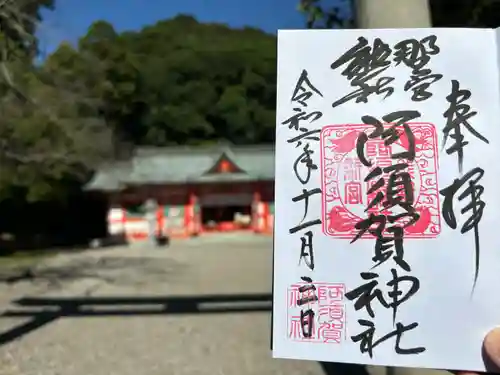 奉拝
熊野
新宮
阿須賀神社
令和六年十一月三日
阿須賀
神社